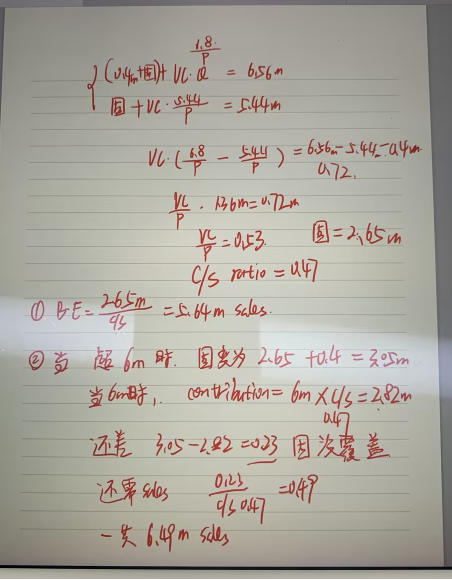 6.8/P
(0.4m+固)+ VC·Q = 6.56m
固 + VC · 5.44/P = 5.44m
VC·(6.8/P - 5.44/P) = 6.56m-5.44m-0.4m
0.72.
VC/P · 1.36m=0.72m
VC/P = 0.53. 固=2.65m
C/S ratio = 0.47
① B·E = 2.65m/C/S = 5.64m sales.
② 当 超 6m 时. 固变为 2.65 +0.4 = 3.05m
当6m时, contribution = 6m × C/S = 2.82m
0.47
还差 3.05-2.82=0.23 固 没覆盖
还需 sales 0.23/C/S 0.47 =0.49
一共 6.49m sales